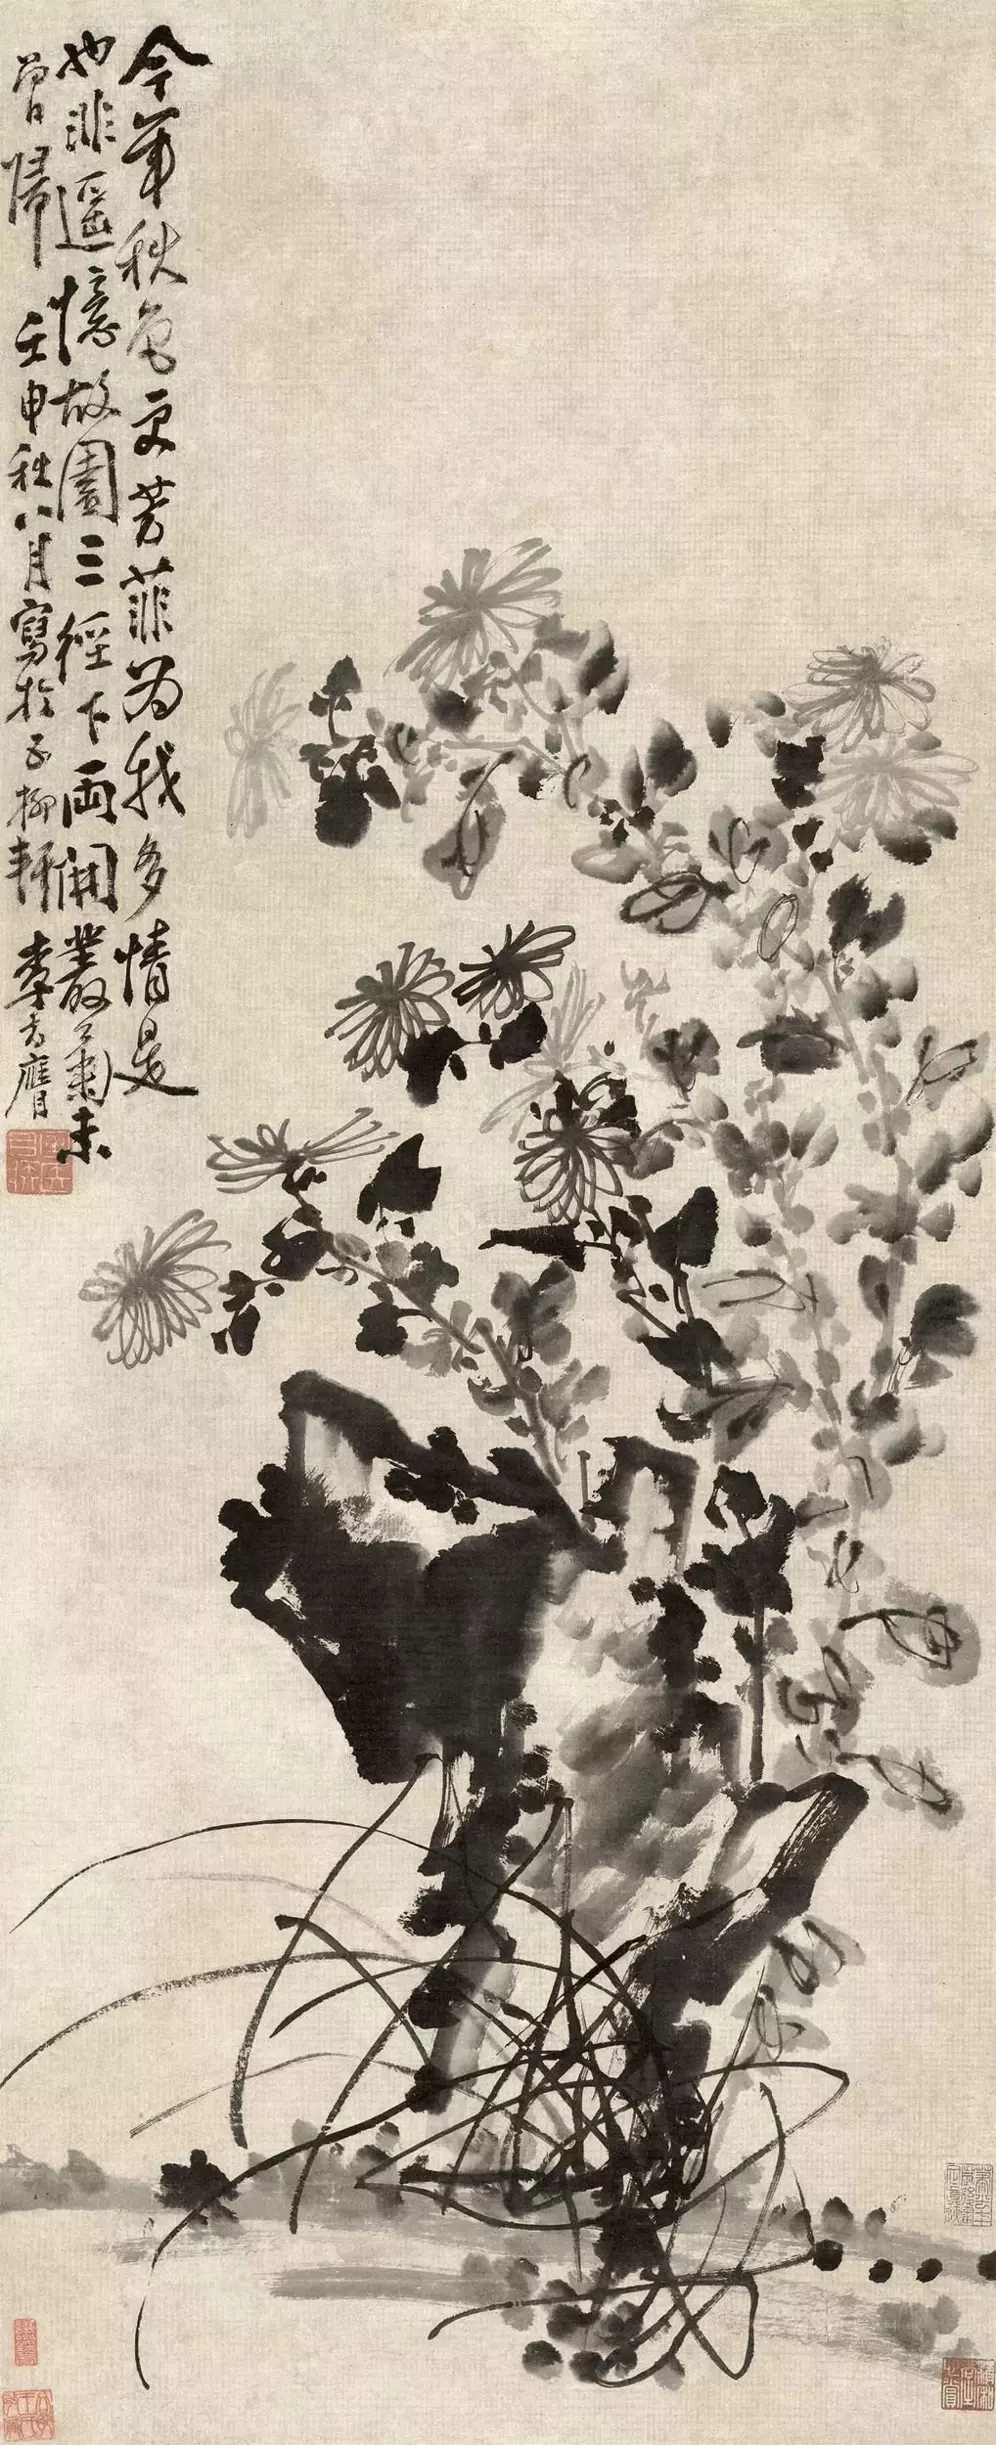 今年秋色更芳菲为我多情是
也非遥憶故園三徑下雨開叢菊未
曾歸 壬申秋八月寫於五柳軒 李方膺